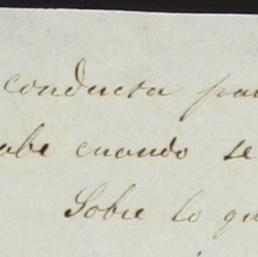 conducta par
abe cuando se
Sobre lo qu